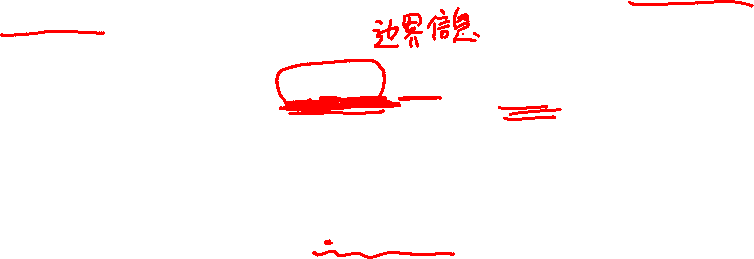 边界信息